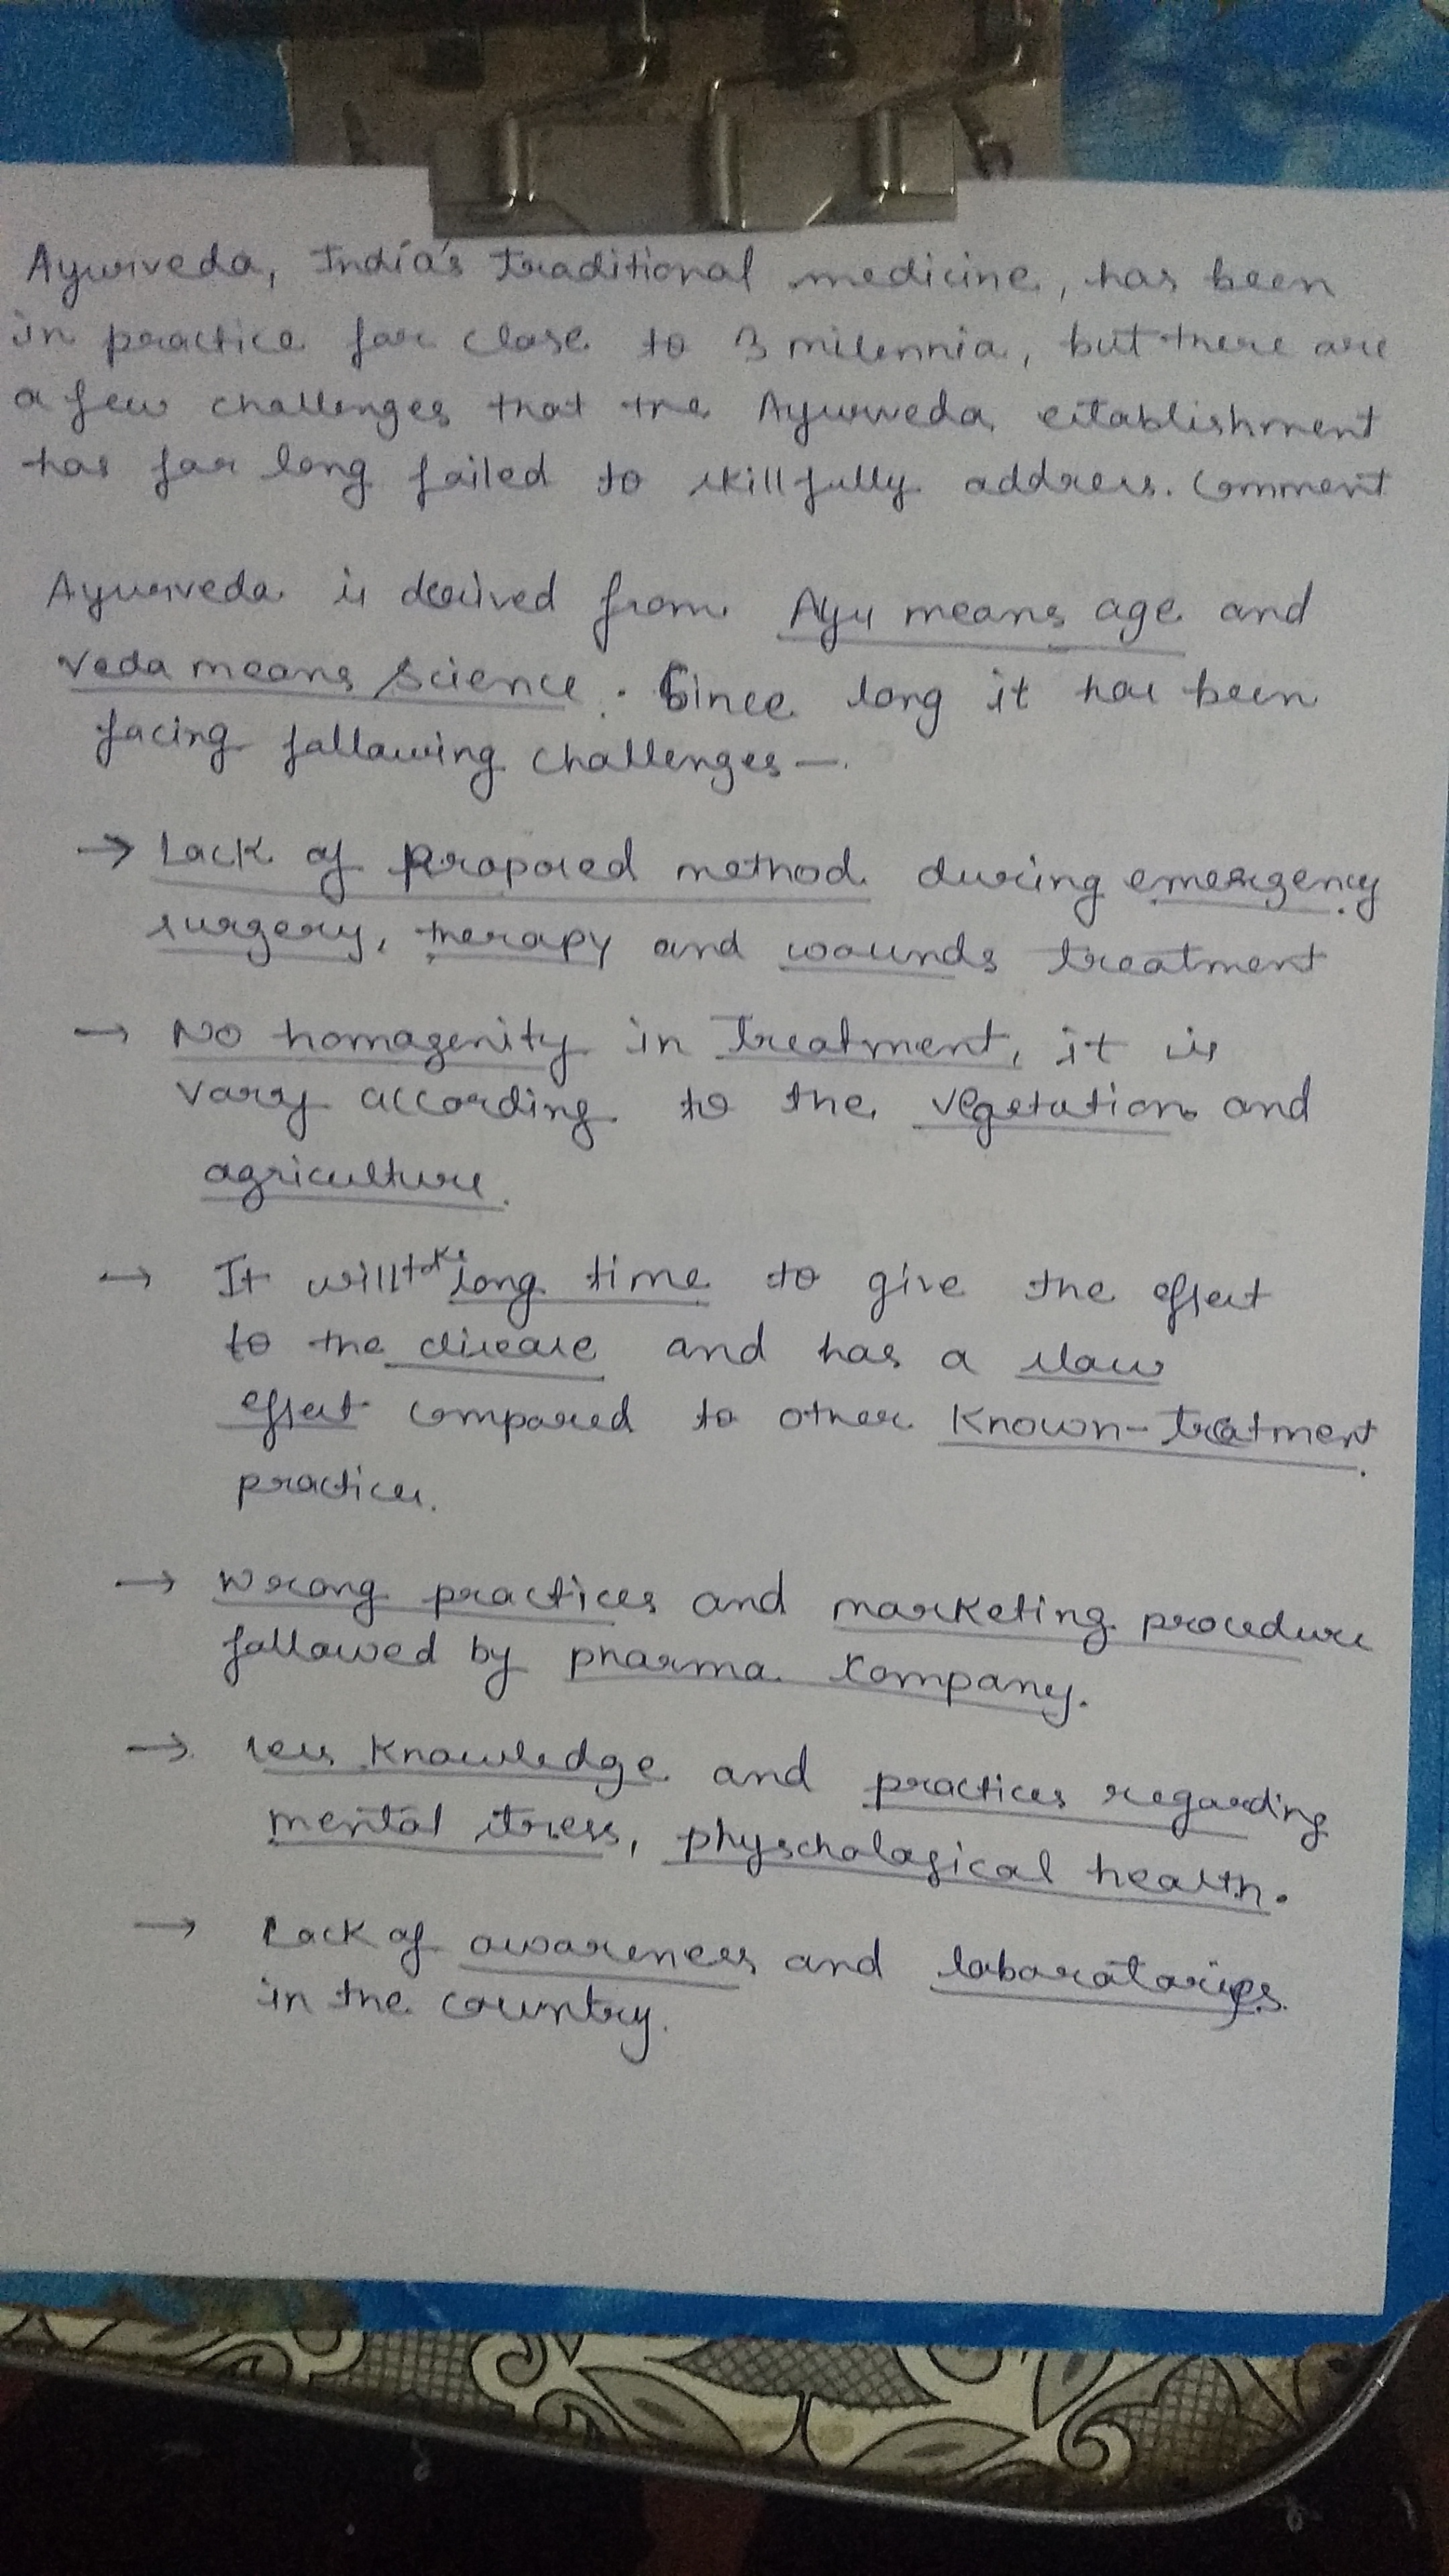 Ayurveda, India's traditional medicine, has been
in practice for close to 3 milennia, but there are
a few challenges that the Ayurveda establishment
has for long failed to skillfully address. Comment
Ayurveda is derived from Ayu means age and
veda means science. Since long it has been
facing following challenges —
→ Lack of proposed method during emergency
surgery, therapy and wounds treatment
→ No homogenity in treatment, it is
vary according to the vegetation and
agriculture.
→ It will take long time to give the effect
to the disease and has a slow
effect compared to other known-treatment
practices.
→ Wrong practices and marketing procedure
followed by pharma company.
→ less knowledge and practices regarding
mental stress, physchological health.
→ Lack of awareness and laboratories
in the country.